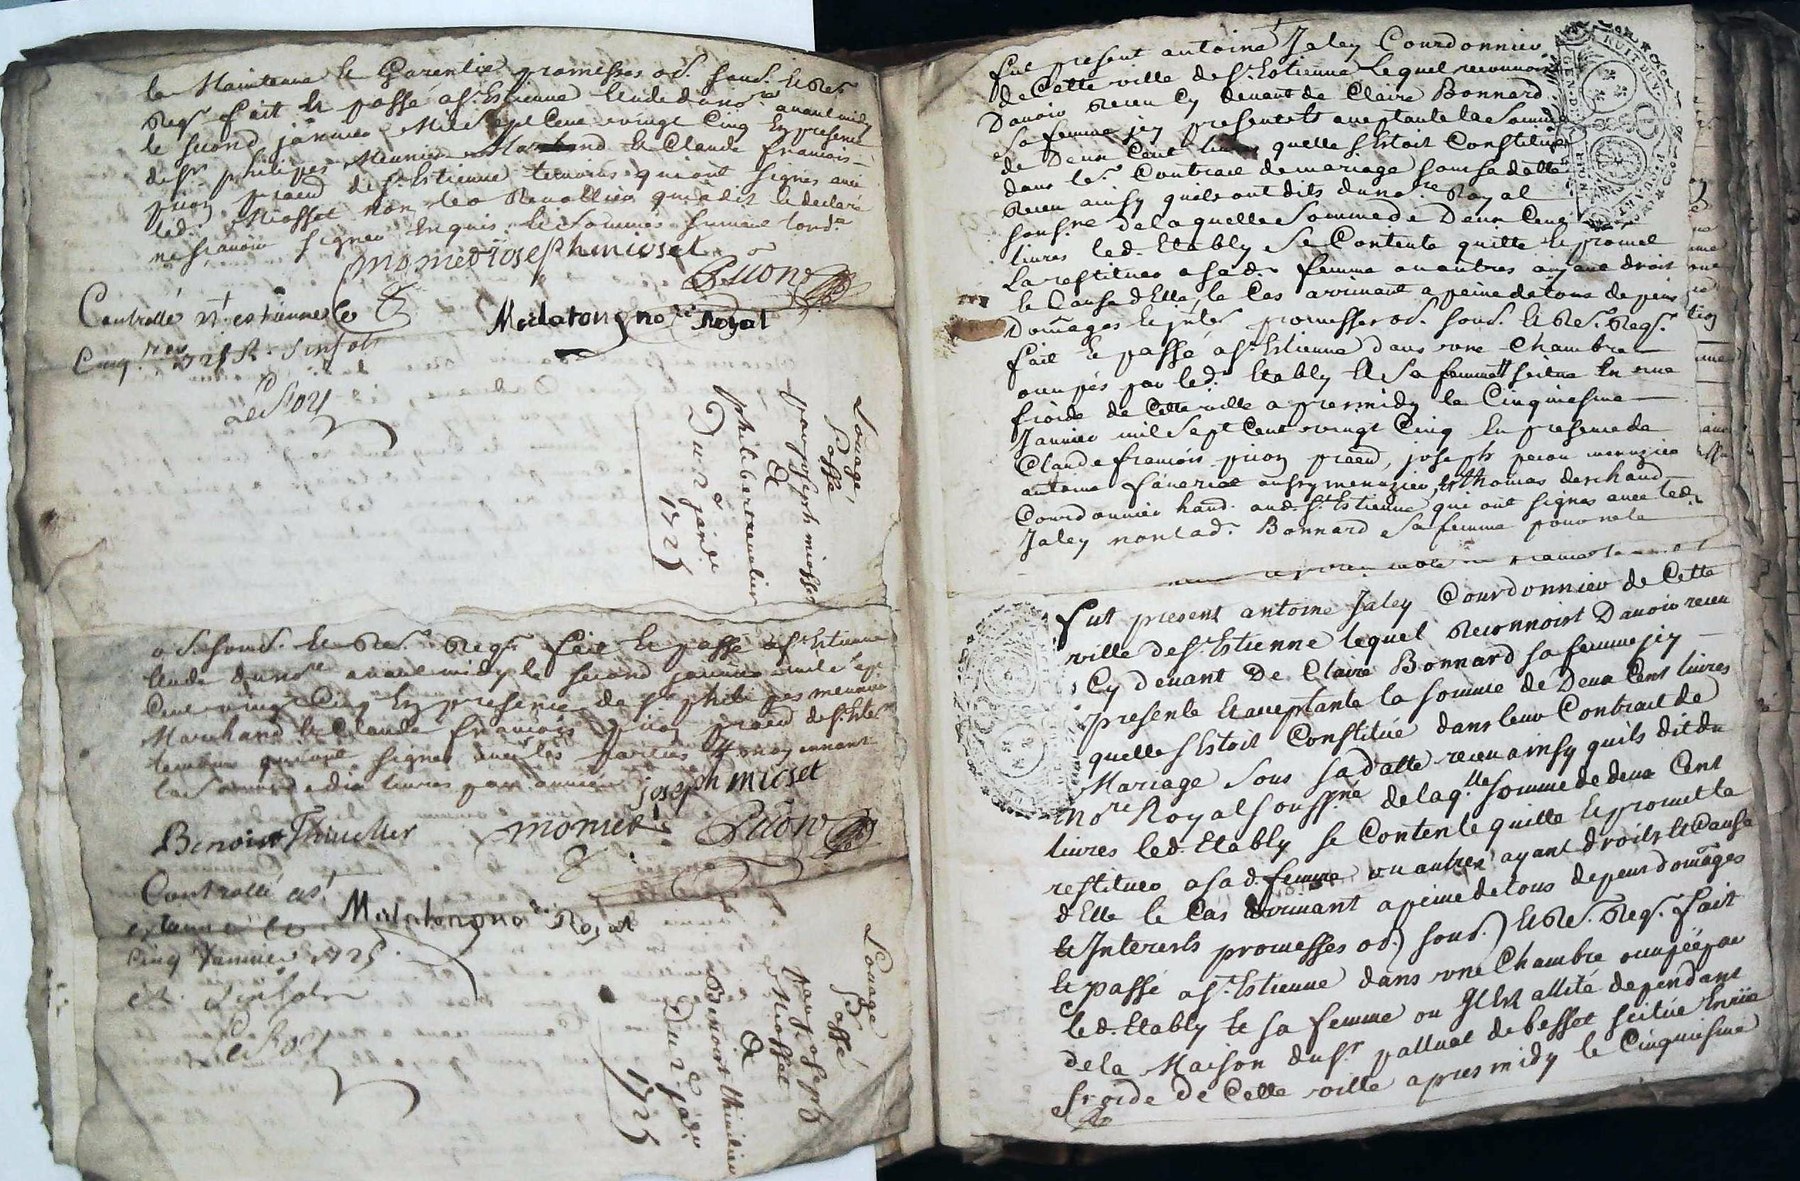 le Maintenue Et Garentie promesses ob. soub. Et Re.
Req. fait Et passé a St. Estienne Etude du no.re avant midy
le second janvier Mil sept Cent vingt Cinq En presence
de sr. philipes Meunier Marchand Et Claude francois
puon praed de St. Estienne temoins qui ont signés avec
led. Miosset non led Revollier qui a dit Et declaré
ne sçavoir signer Enquis Et sommés suivant lord.e
monier joseph miosset
Puon
Controllé a St estienne le
Cinq.
Madatongno.re Royal
Le Roy
Louage,
Passé
par joseph miosset
A
philibert revolier
Du 2e jan.er
1725
ob. soub. Et Re. Req. fait Et passé a St. Estienne
Etude du no.re avant midy le second janvier mil sept
Cent vingt Cinq En presence de sr. philipes meunier
Marchand Et Claude francois puon praed de St. Este.
temoins qui ont signés avec les parties moyennant
la somme de dix livres par année
joseph miosset
Benoist Thiuellier monier Puon
Controllé a St
estienne le
Cinq Janvier 1725
Madatongno.re Royal
Le Roy
Louage
Passé
par joseph
Miosset
A
Benoist thiuilier
Du 2e janv.
1725
fut present antoine Jaley Courdonnier
de Cette ville de St. Estienne Lequel reconnoi
Davoir Receu Cy devant de Claire Bonnard
sa femme jcy presente Et aceptante la somme
de Deux Cent livres quelle s'Estoit Constitué
dans le. Contract de mariage sous sa datte
Receu ainsy quils ont dits du no.re Royal
sousne. de laquelle somme de Deux Cent
livres led. Etably se Contente quitte Et promet
la restituer a sa d. femme ou autres ayant droit
Et Cause d'Elle, le Cas arrivant a peine de tous depens
Domages Et jnter. promesses ob. soub. Et Re. Req.
fait Et passé a St. Estienne dans une Chambre
occupés par led. Etably Et sa femme scitue En rue
froide de Cette ville apres midy le Cinquiesme
Janvier mil sept Cent vingt Cinq En presence de
Claude francois puon praed, joseph peron menuzier
antoine faverial aussy menuzier, Et thomas derchaud
Courdonnier hand. aud. St Estienne qui ont signés avec led.
Jaley non lad. Bonnard sa femme pour ne le
fut present antoine Jaley Courdonnier de Cette
ville de St. Estienne lequel Reconnoist Davoir receu
Cy devant De Claire Bonnard sa femme jcy
presente Et aceptante la somme de Deux Cent livres
quelle s'Estoit Constitué dans leur Contract de
Mariage sous sa datte receu ainsy quils dit du
no.re Royal soussne de laq.lle somme de deux Cent
livres led. Etably se Contente quitte Et promet la
restituer a sa d. femme ou autres ayant droit Et Cause
d'Elle le Cas arrivant a peine de tous depens domages
Et Interests promesses ob) soub.) Et Re. Req. fait
Et passé a St. Estienne dans une Chambre occupée par
led. Etably Et sa femme ou Il Est allité dependant
de la Maison du sr. palluat de besset scitué En rüe
froide de Cette ville apres midy le Cinquiesme